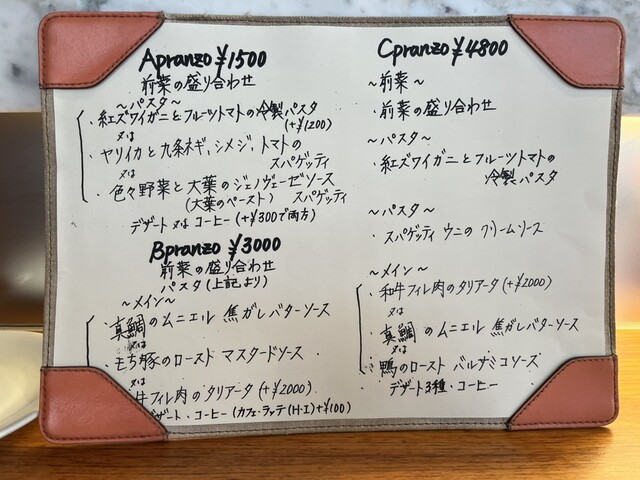 Apranzo ¥1500
前菜の盛り合わせ
～パスタ～
・紅ズワイガニとフルーツトマトの冷製パスタ
(+¥1200)
又は
・ヤリイカと九条ネギ、シメジ、トマトの
スパゲッティ
又は
・色々野菜と大葉のジェノヴェーゼソース
(大葉のペースト) スパゲッティ
デザート 又は コーヒー (+¥300で両方)
Bpranzo ¥3000
前菜の盛り合わせ
パスタ (上記より)
～メイン～
・真鯛のムニエル 焦がしバターソース
又は
・もち豚のロースト マスタードソース
又は
牛フィレ肉のタリアータ (+¥2000)
デザート・コーヒー (カフェ・ラッテ(H・I)+¥100)
Cpranzo ¥4800
～前菜～
・前菜の盛り合わせ
～パスタ～
・紅ズワイガニとフルーツトマトの
冷製パスタ
～パスタ～
・スパゲッティ ウニの クリームソース
～メイン～
・和牛フィレ肉のタリアータ (+¥2000)
又は
・真鯛 のムニエル 焦がしバターソース
又は
・鴨のロースト バルサミコソース
デザート3種・コーヒー